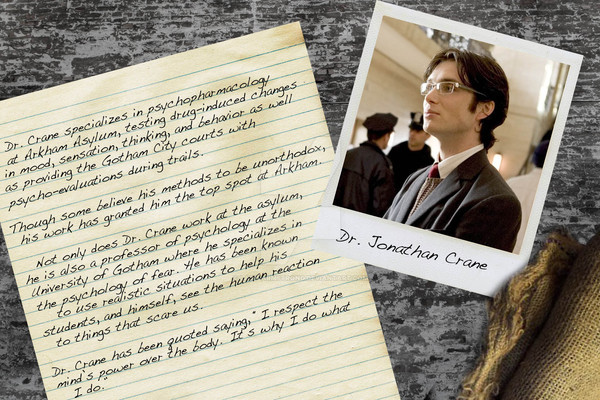 Dr. Crane specializes in psychopharmacology
at Arkham Asylum, testing drug-induced changes
in mood, sensation, thinking, and behavior as well
as providing the Gotham City courts with
psycho-evaluations during trails.
Though some believe his methods to be unorthodox,
his work has granted him the top spot at Arkham.
Not only does Dr. Crane work at the asylum,
he is also a professor of psychology at the
University of Gotham where he specializes in
the psychology of fear. He has been known
to use realistic situations to help his
students, and himself, see the human reaction
to things that scare us.
Dr. Crane has been quoted saying," I respect the
mind's power over the body. It's why I do what
I do."
Dr. Jonathan Crane